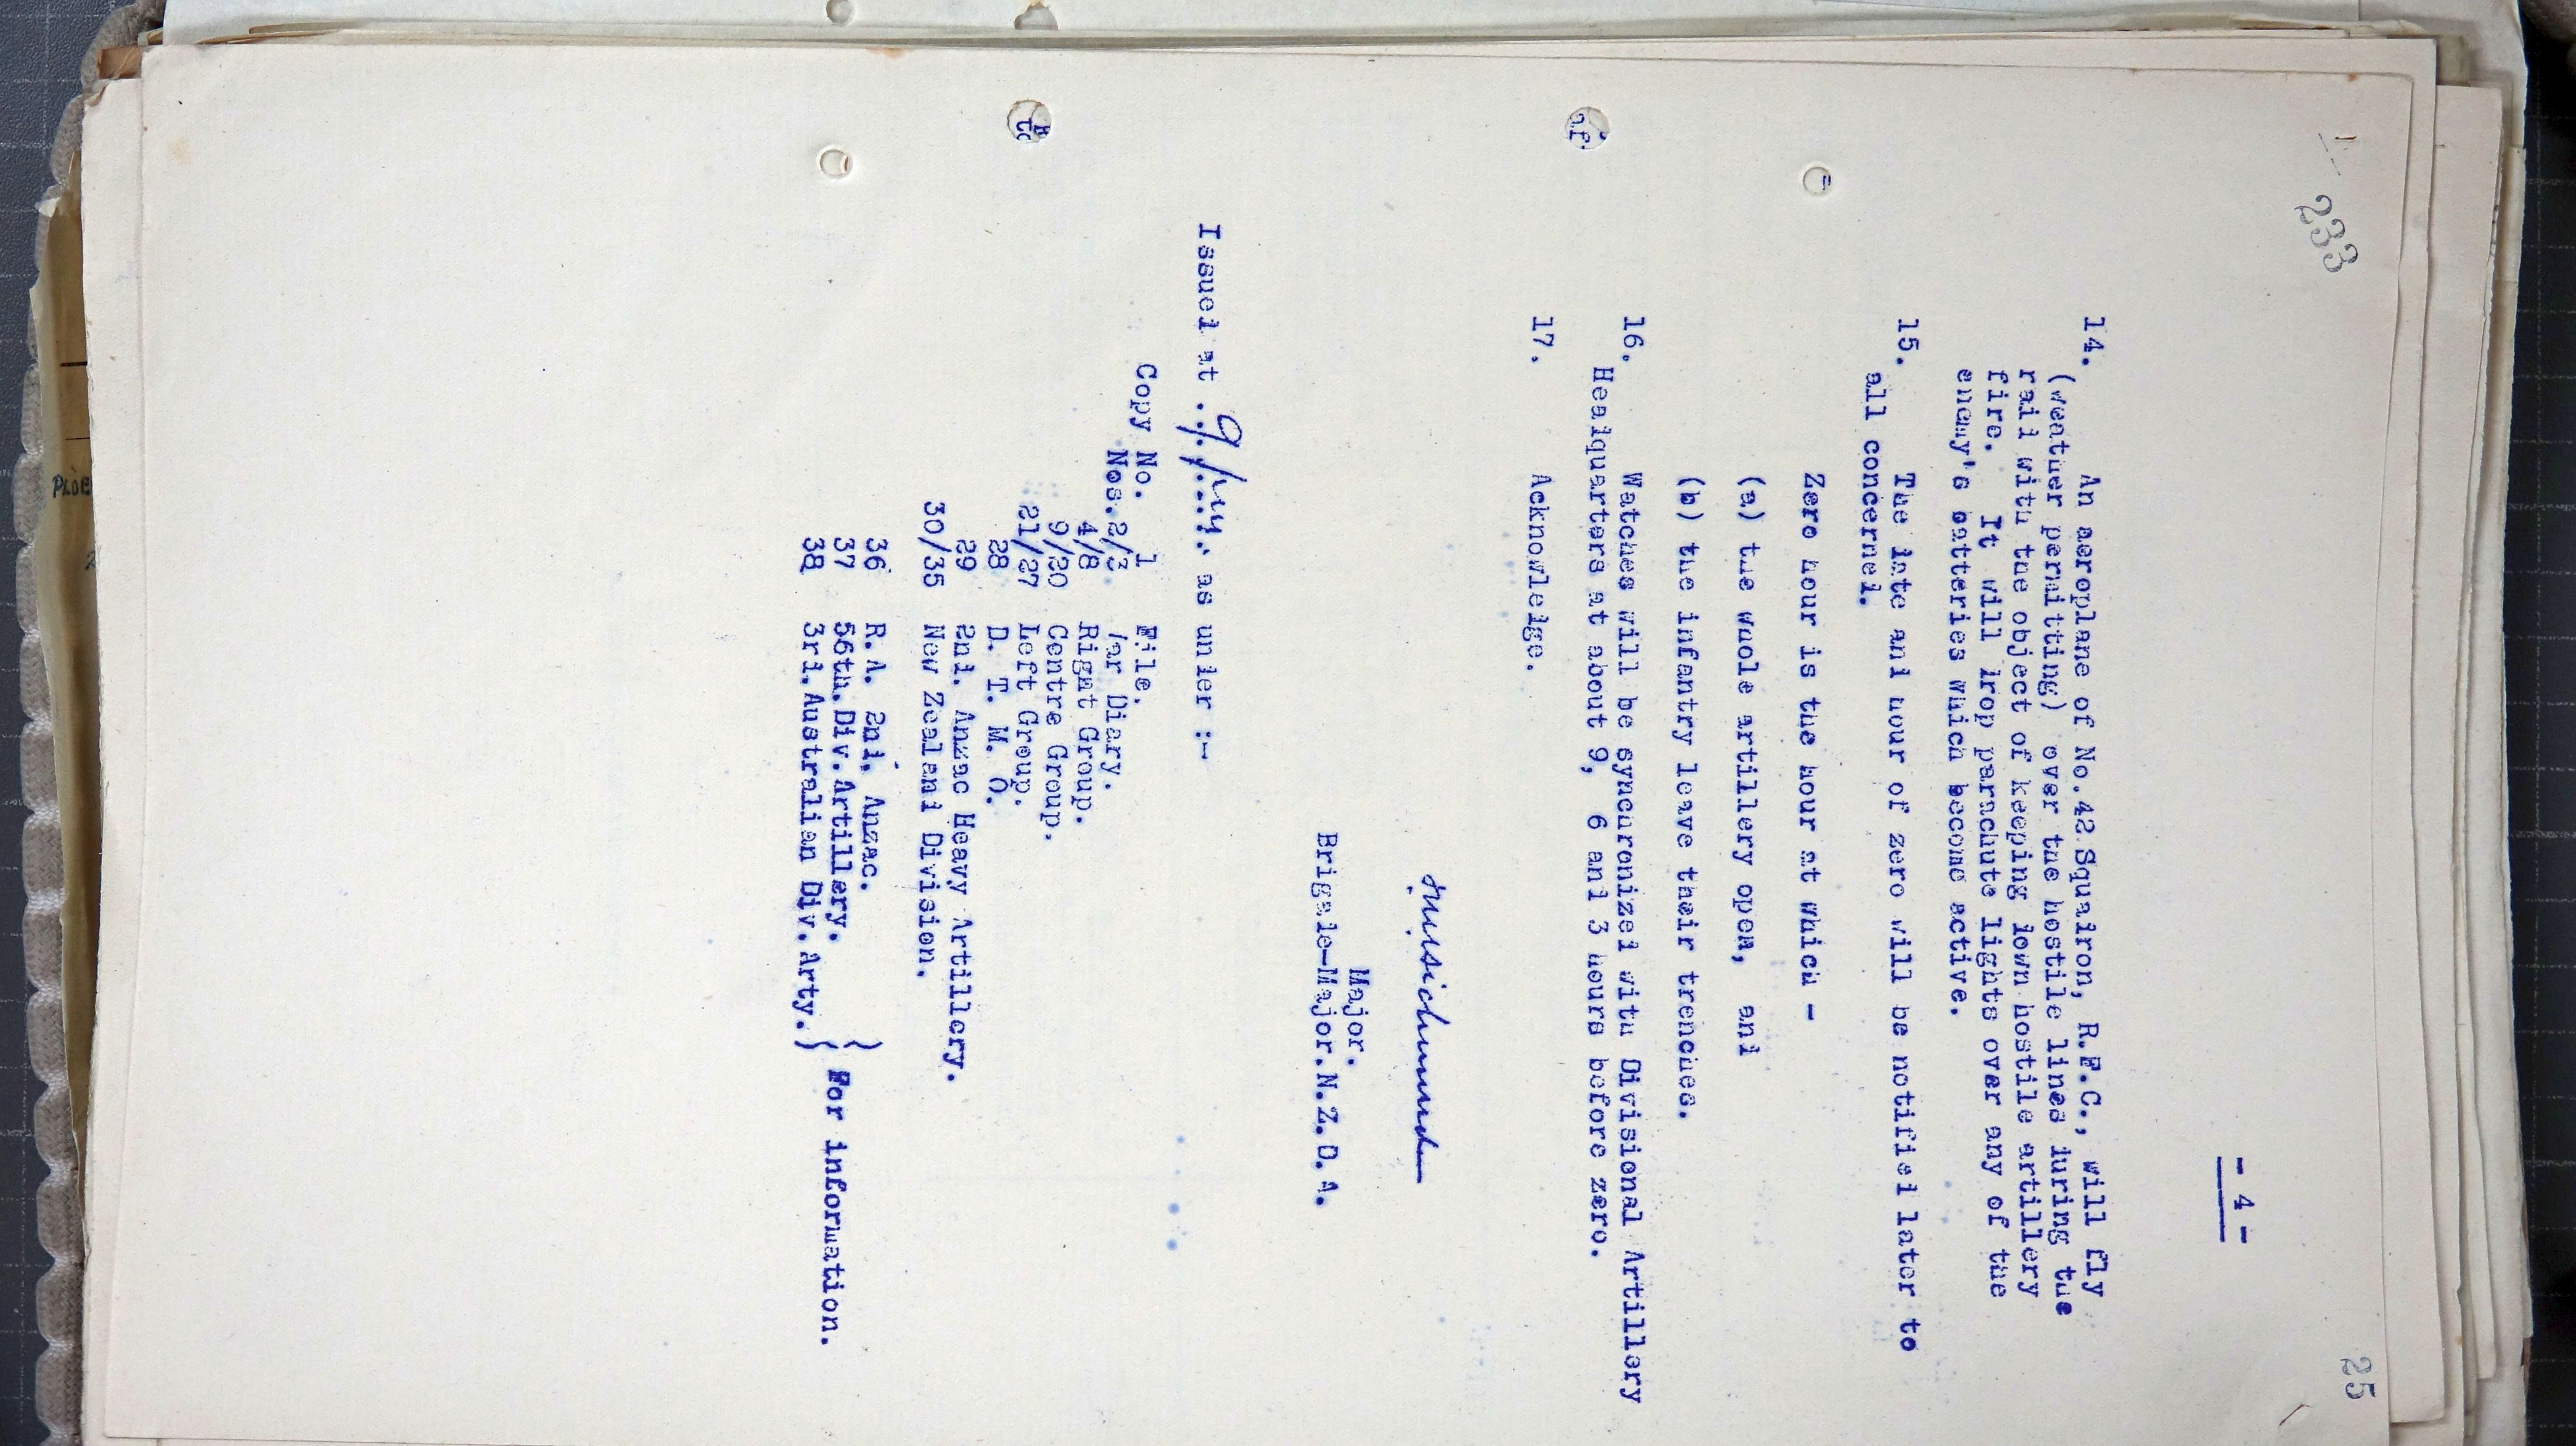 233
25
- 4 -
14. An aeroplane of No.42 Squadron, R.F.C., will fly
(weather permitting) over the hostile lines during the
raid with the object of keeping down hostile artillery
fire. It will drop parachute lights over any of the
enemy's batteries which become active.
15. The date and hour of zero will be notified later to
all concerned.
Zero hour is the hour at which -
(a) the whole artillery open, and
(b) the infantry leave their trenches.
16. Watches will be synchronized with Divisional Artillery
Headquarters at about 9, 6 and 3 hours before zero.
17. Acknowledge.
Major.
Brigade-Major.N.Z.D.A.
Issued at 9 as under :-
Copy No. 1 File.
Nos. 2/3 War Diary.
4/8 Right Group.
9/20 Centre Group.
21/27 Left Group.
28 D. T. M. O.
29 2nd. Anzac Heavy Artillery.
30/35 New Zealand Division.
36 R.A. 2nd. Anzac. )
37 56th.Div.Artillery. { For information.
38 3rd.Australian Div.Arty.)